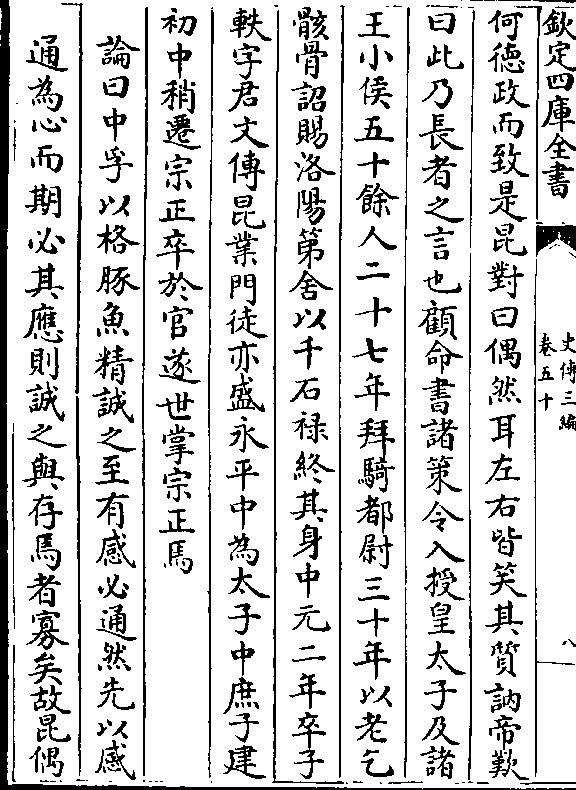 欽定四庫全書
史傳三編
卷五十
八
何德政而致是昆對曰偶然耳左右皆笑其質訥帝歎
曰此乃長者之言也顧命書諸策令入授皇太子及諸
王小侯五十餘人二十七年拜騎都尉三十年以老乞
骸骨詔賜洛陽第舍以千石禄終其身中元二年卒子
軼字君文傳昆業門徒亦盛永平中為太子中庶子建
初中稍遷宗正卒於官遂世掌宗正焉
論曰中孚以格豚魚精誠之至有感必通然先以感
通為心而期必其應則誠之與存焉者寡矣故昆偶